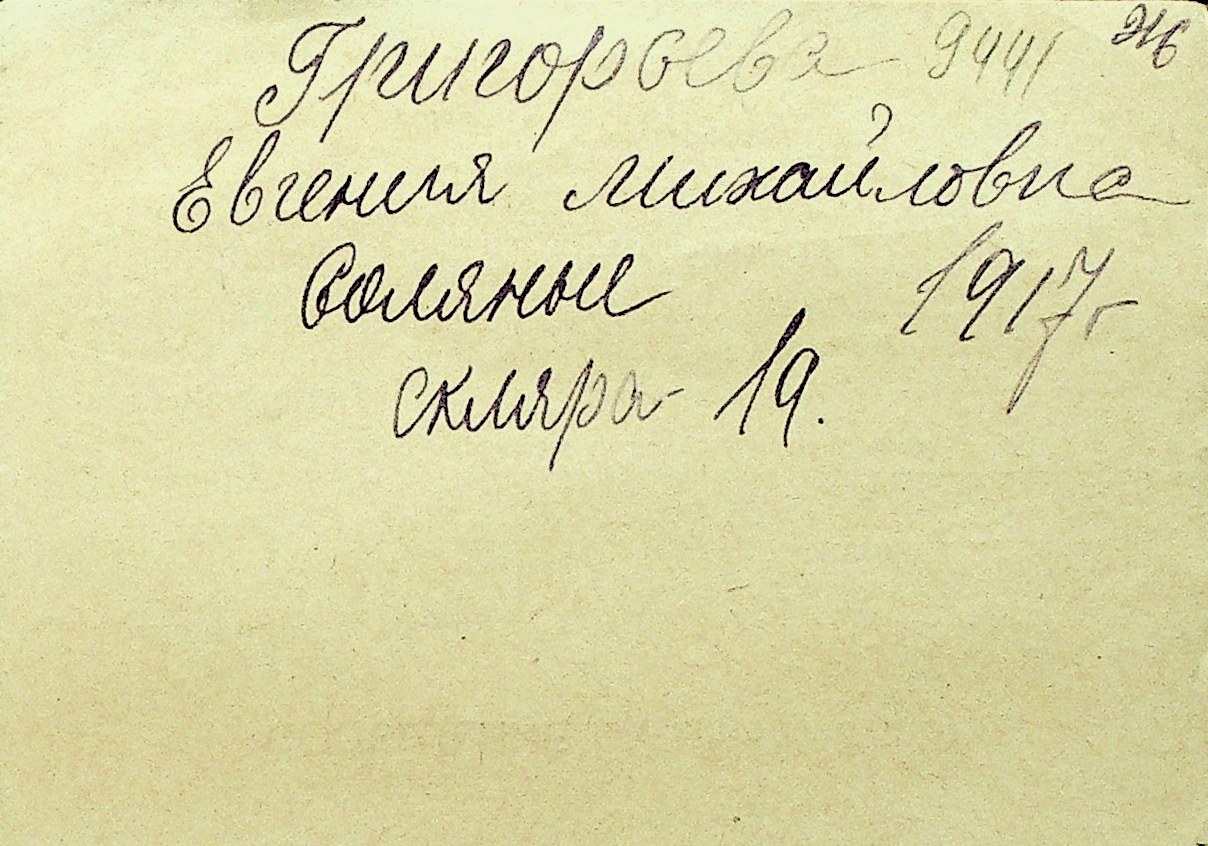 Григорьева 9441
Евгения Михайловна
Соляные 1917г
скляра 19.